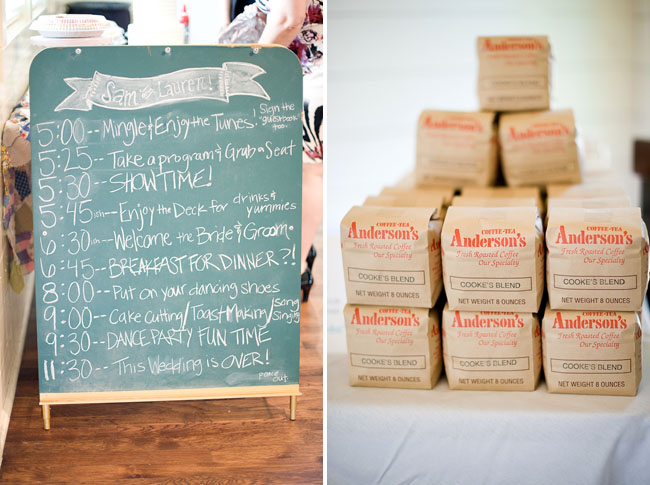 Sam and Lauren!
5:00--Mingle & Enjoy the Tunes. ! Sign the guestbook too.
5:25--Take a program & Grab a Seat
5:30--SHOWTIME!
5:45ish--Enjoy the Deck for drinks & yummies
6:30ish--Welcome the Bride & Groom
6:45--BREAKFAST FOR DINNER?!
8:00--Put on your dancing shoes
9:00--Cake Cutting/Toast Making/Song Singing
9:30--DANCE PARTY FUN TIME
11:30--This Wedding is OVER!
peace out
Anderson's
COFFEE-TEA
Anderson's
Fresh Roasted Coffee
Our Specialty
COOKE'S BLEND
NET WEIGHT 8 OUNCES
COFFEE-TEA
Anderson's
Fresh Roasted Coffee
Our Specialty
COOKE'S BLEND
NET WEIGHT 8 OUNCES
COFFEE-TEA
Anderson's
Fresh Roasted Coffee
Our Specialty
COOKE'S BLEND
NET WEIGHT 8 OUNCES
Anderson's
Fresh Roasted Coffee
Our Specialty
COOKE'S BLEND
NET WEIGHT 8 OUNCES
Anderson's
Fresh Roasted Coffee
Our Specialty
COOKE'S BLEND
NET WEIGHT 8 OUNCES
Anderson's
Fresh Roasted Coffee
Our Specialty
COOKE'S BLEND
NET WEIGHT 8 OUNCES